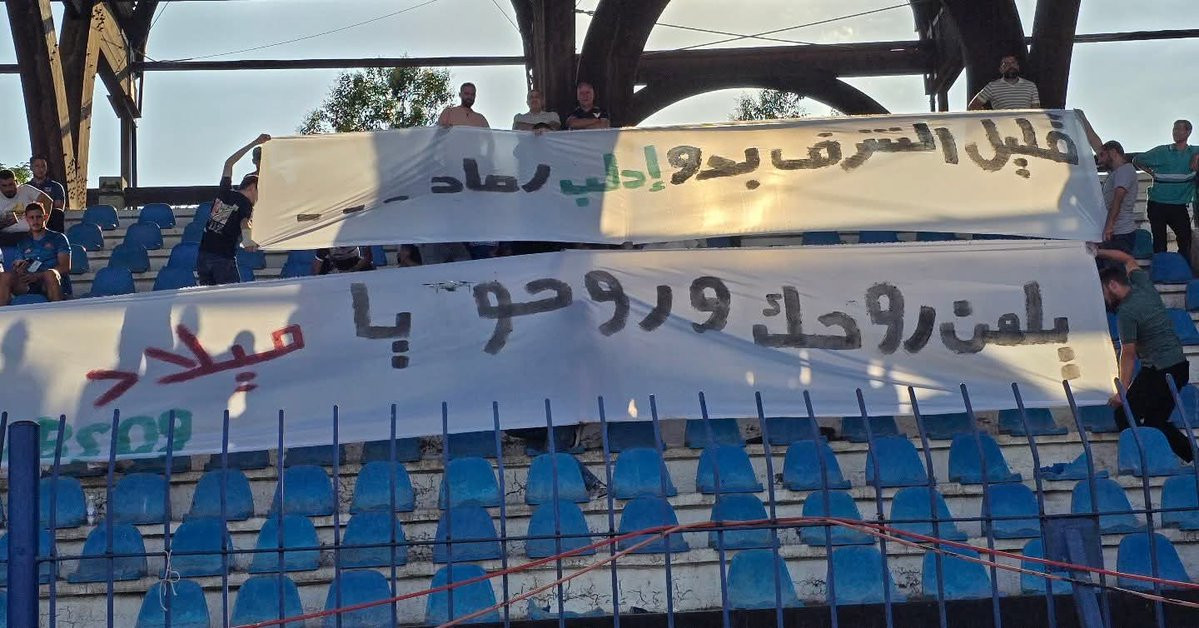 قليل الشرف بدو إدلب رماد ـ ـ ـ
يلعن روحك وروحو يا ميلاد